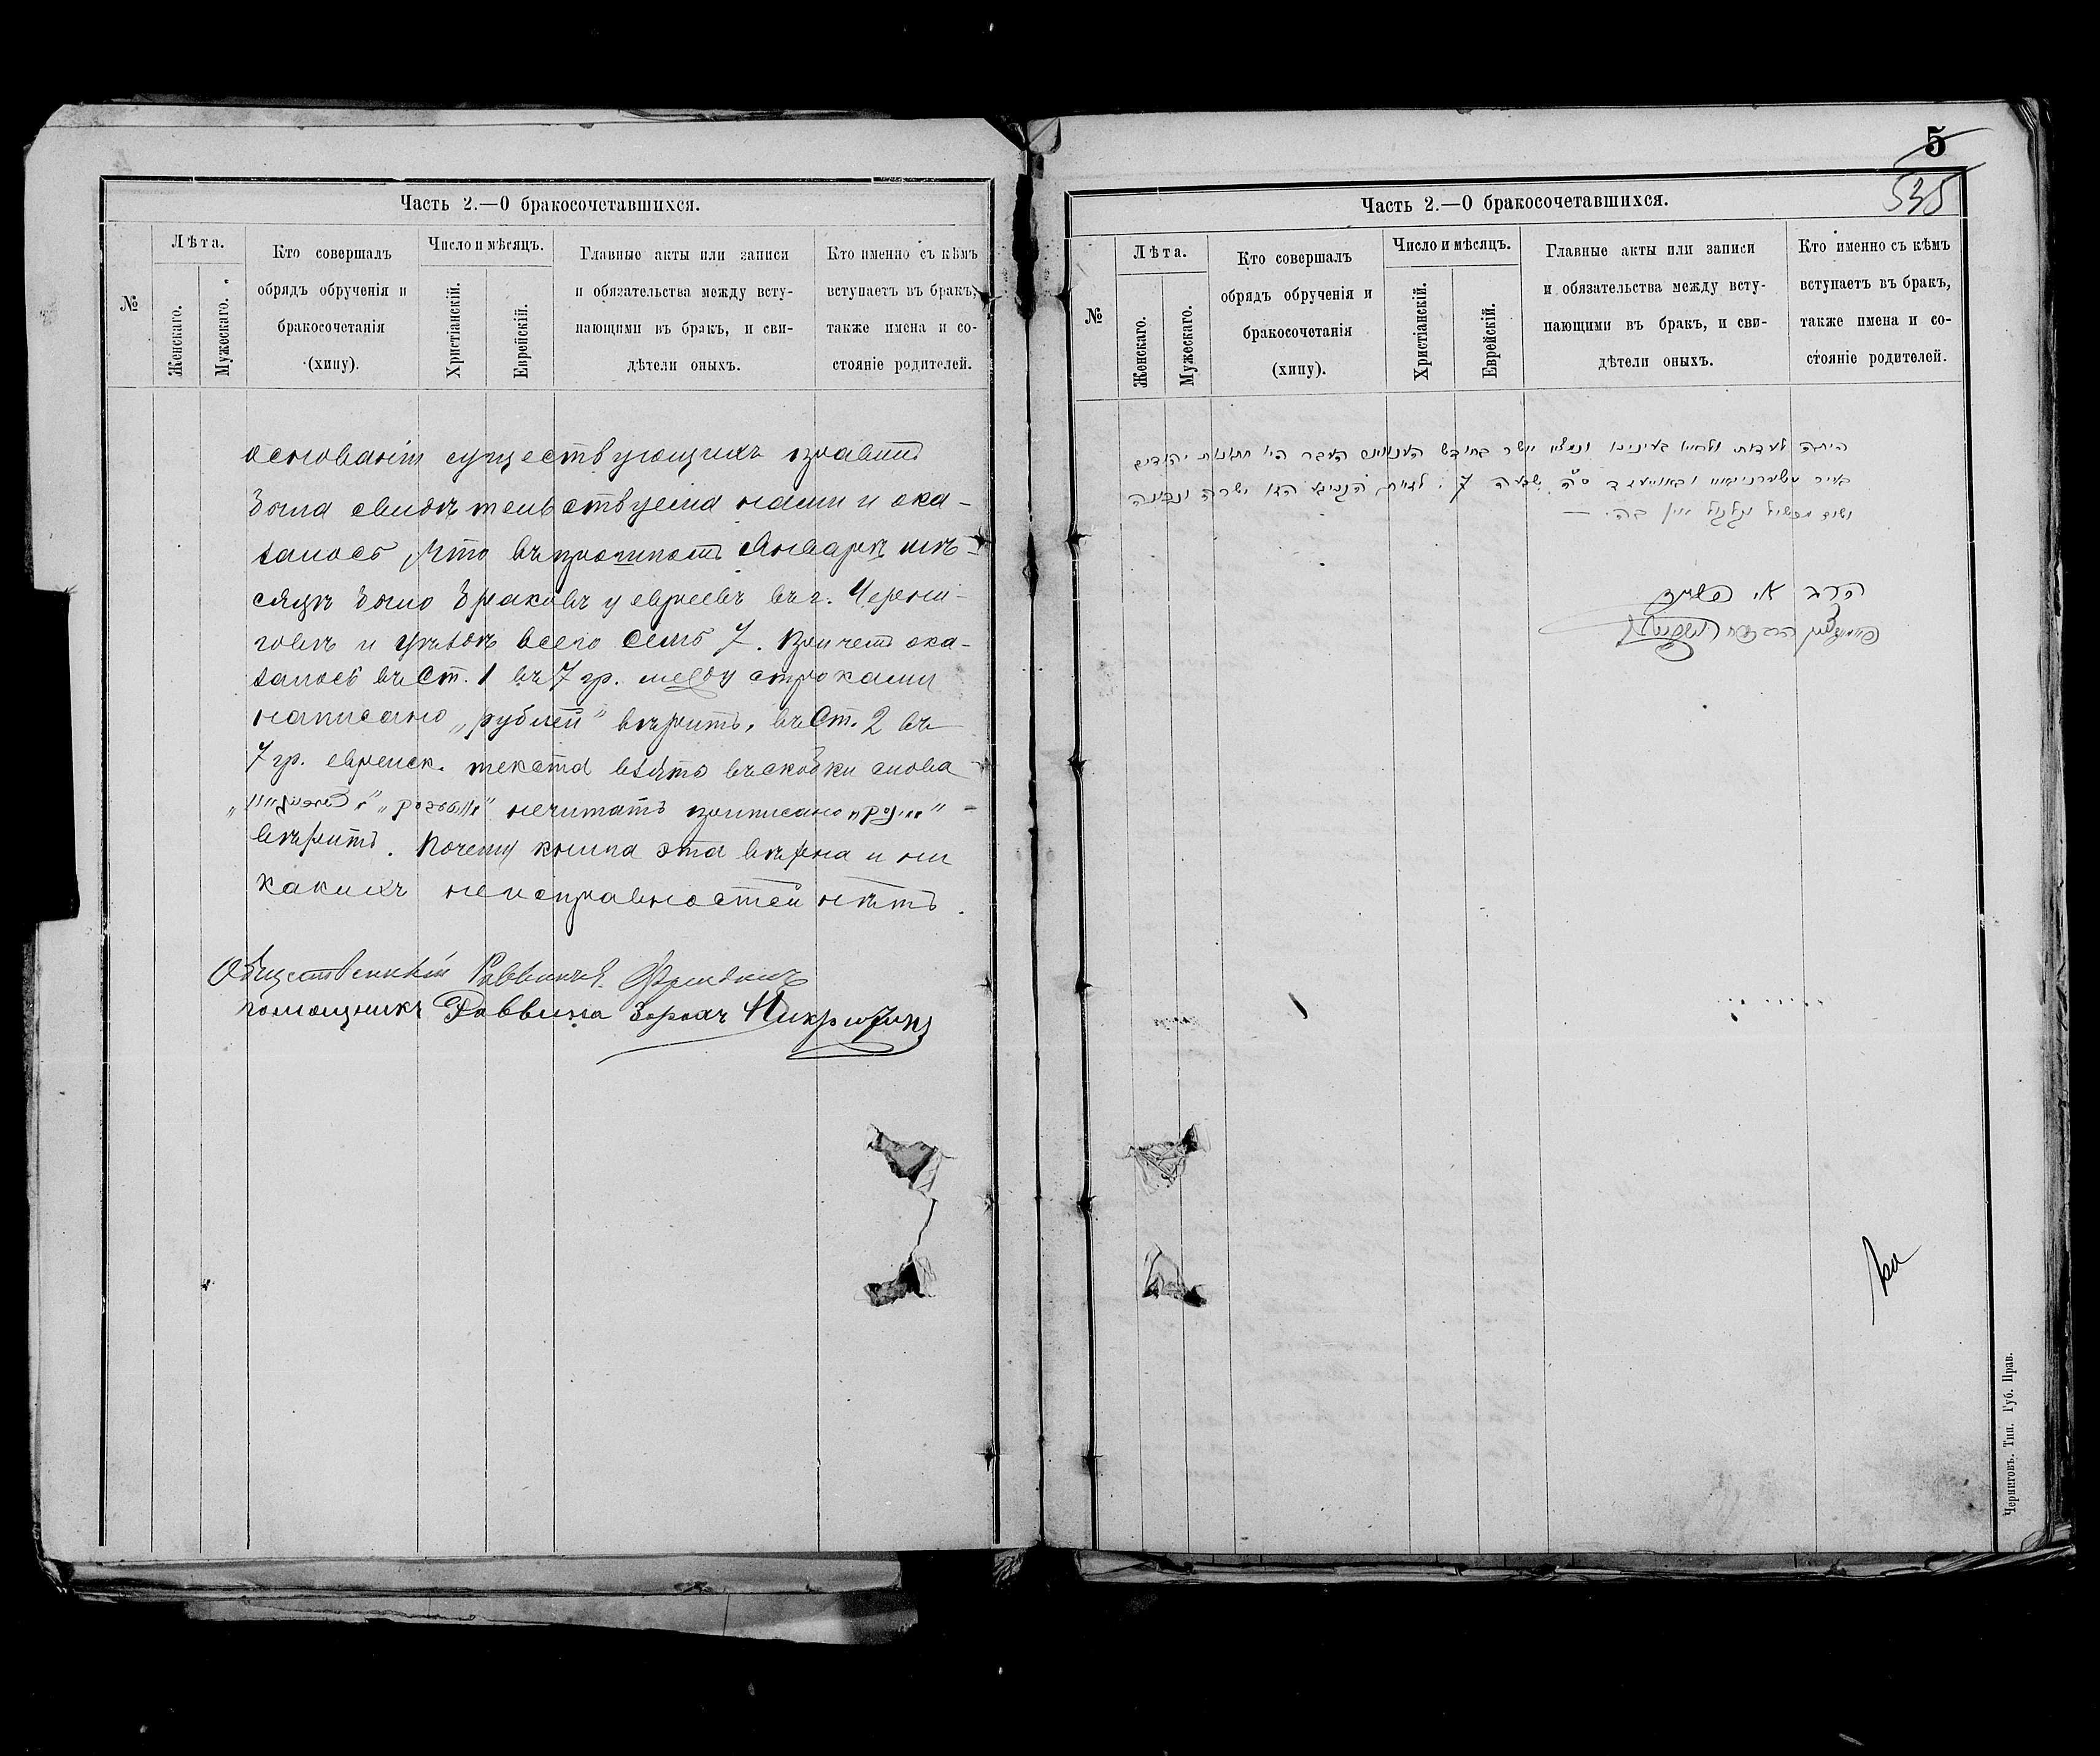 Часть 2.—О бракосочетавшихся.
№
Лѣта.
Женскаго.
Мужескаго.
Кто совершалъ
обрядъ обрученія и
бракосочетанія
(хипу).
Число и мѣсяцъ.
Христіанскій.
Еврейскій.
Главные акты или записи
и обязательства между всту-
пающими въ бракъ, и сви-
дѣтели оныхъ.
Кто именно съ кѣмъ
вступаетъ въ бракъ,
также имена и со-
стояніе родителей.
основаніи существующихъ правилъ
была свидѣтельствуема нами и ока-
залось, что въ прошломъ Январѣ мѣ-
сяцѣ было браковъ у евреевъ въ г. Черни-
говѣ и уѣздѣ всего семь 7. При чемъ ока-
залось въ Ст. 1 въ 7 гр. между строками
написано „рублей" вѣрить, въ Ст. 2 въ
7 гр. еврейск. текста взято въ скобки слова
нечитать приписано
вѣрить. Почему книга эта вѣрна и ни
какихъ неисправностей нѣтъ.
Общественный Раввинъ
Помощникъ Раввина Зорахъ
5
535
Часть 2.—О бракосочетавшихся.
№
Лѣта.
Женскаго.
Мужескаго.
Кто совершалъ
обрядъ обрученія и
бракосочетанія
(хипу).
Число и мѣсяцъ.
Христіанскій.
Еврейскій.
Главные акты или записи
и обязательства между всту-
пающими въ бракъ, и сви-
дѣтели оныхъ.
Кто именно съ кѣмъ
вступаетъ въ бракъ,
также имена и со-
стояніе родителей.
היתה לעדות בחודש העבר היו חתונות
7
הרב
הרב
Черниговъ. Тип. Губ. Прав.